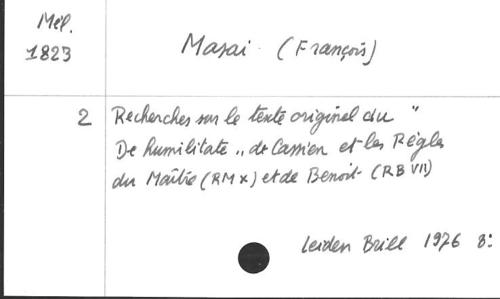 Mél.
1823
Masai (François)
2 Recherches sur le texte originel du "
De humilitate " de Cassien et les Règles
du Maître (RM X) et de Benoit (RB VII)
Leiden Brill 1976 8: